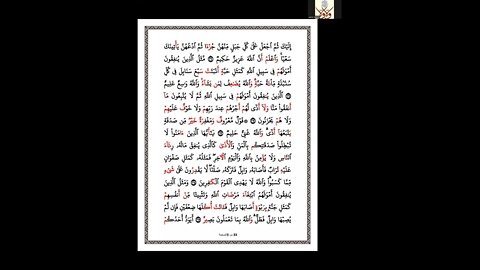 إِلَيْكَ ثُمَّ ٱجْعَلْ عَلَىٰ كُلِّ جَبَلٍ مِّنْهُنَّ جُزْءًا ثُمَّ ٱدْعُهُنَّ يَأْتِينَكَ
سَعْيًا وَٱعْلَمْ أَنَّ ٱللَّهَ عَزِيزٌ حَكِيمٌ مَّثَلُ ٱلَّذِينَ يُنفِقُونَ
أَمْوَٰلَهُمْ فِى سَبِيلِ ٱللَّهِ كَمَثَلِ حَبَّةٍ أَنۢبَتَتْ سَبْعَ سَنَابِلَ فِى كُلِّ
سُنۢبُلَةٍ مِّا۟ئَةُ حَبَّةٍ وَٱللَّهُ يُضَٰعِفُ لِمَن يَشَآءُ وَٱللَّهُ وَٰسِعٌ عَلِيمٌ
ٱلَّذِينَ يُنفِقُونَ أَمْوَٰلَهُمْ فِى سَبِيلِ ٱللَّهِ ثُمَّ لَا يُتْبِعُونَ مَآ
أَنفَقُوا۟ مَنًّا وَلَآ أَذًى لَّهُمْ أَجْرُهُمْ عِندَ رَبِّهِمْ وَلَا خَوْفٌ عَلَيْهِمْ
وَلَا هُمْ يَحْزَنُونَ قَوْلٌ مَّعْرُوفٌ وَمَغْفِرَةٌ خَيْرٌ مِّن صَدَقَةٍ
يَتْبَعُهَآ أَذًى وَٱللَّهُ غَنِىٌّ حَلِيمٌ يَٰٓأَيُّهَا ٱلَّذِينَ ءَامَنُوا۟ لَا
تُبْطِلُوا۟ صَدَقَٰتِكُم بِٱلْمَنِّ وَٱلْأَذَىٰ كَٱلَّذِى يُنفِقُ مَالَهُۥ رِئَآءَ
ٱلنَّاسِ وَلَا يُؤْمِنُ بِٱللَّهِ وَٱلْيَوْمِ ٱلْءَاخِرِ فَمَثَلُهُۥ كَمَثَلِ صَفْوَانٍ
عَلَيْهِ تُرَابٌ فَأَصَابَهُۥ وَابِلٌ فَتَرَكَهُۥ صَلْدًا لَّا يَقْدِرُونَ عَلَىٰ شَىْءٍ
مِّمَّا كَسَبُوا۟ وَٱللَّهُ لَا يَهْدِى ٱلْقَوْمَ ٱلْكَٰفِرِينَ وَمَثَلُ ٱلَّذِينَ
يُنفِقُونَ أَمْوَٰلَهُمُ ٱبْتِغَآءَ مَرْضَاتِ ٱللَّهِ وَتَثْبِيتًا مِّنْ أَنفُسِهِمْ
كَمَثَلِ جَنَّةٍۭ بِرَبْوَةٍ أَصَابَهَا وَابِلٌ فَـَٔاتَتْ أُكُلَهَا ضِعْفَيْنِ فَإِن لَّمْ
يُصِبْهَا وَابِلٌ فَطَلٌّ وَٱللَّهُ بِمَا تَعْمَلُونَ بَصِيرٌ أَيَوَدُّ أَحَدُكُمْ